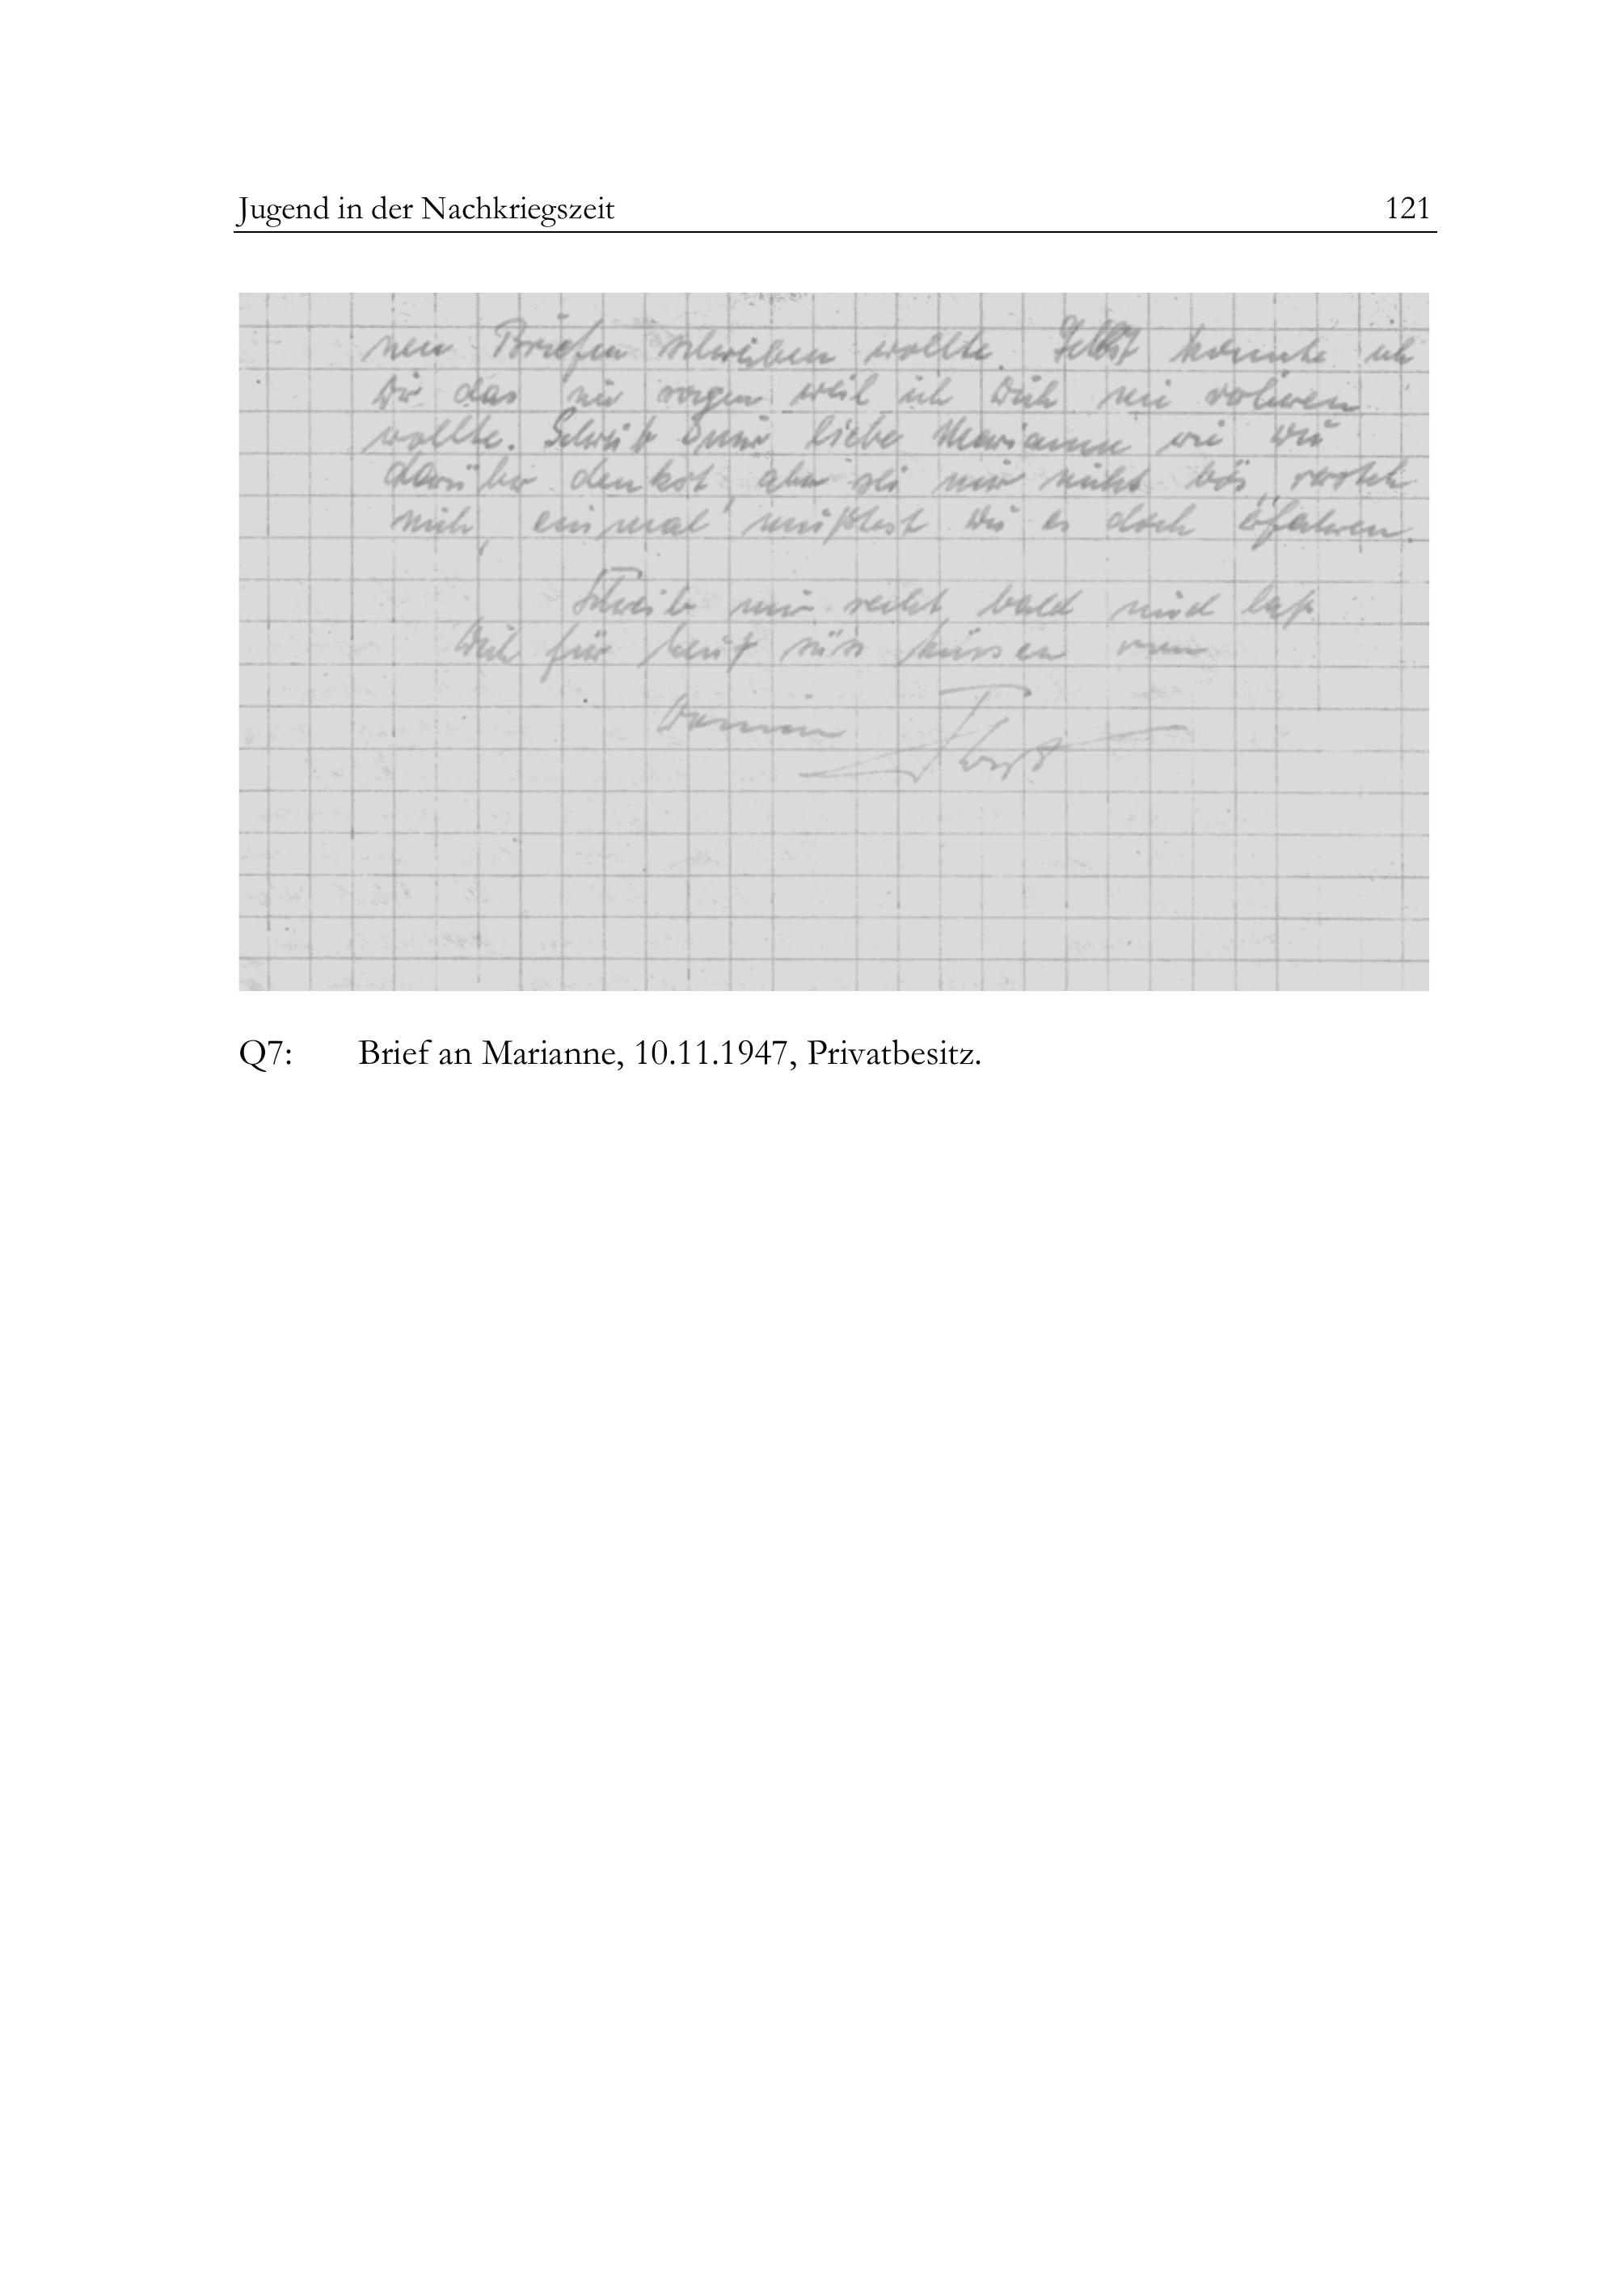 Jugend in der Nachkriegszeit 121
nen Briefen schreiben wollte. Selbst konnte ich
Dir das nie sagen weil ich Dich nie
wollte. Schreib mir liebe Marianne wie Du
darüber denkst, aber sei mir nicht bös, versteh
mich, einmal mußtest Du es doch erfahren.
Schreib mir recht bald und laß
Dich für heut küssen von
Deinem Horst
Q7: Brief an Marianne, 10.11.1947, Privatbesitz.